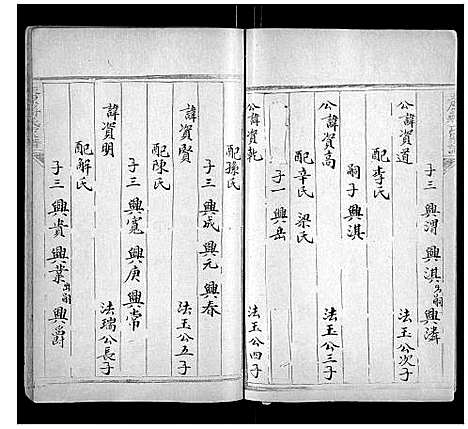 子三 興渭 興淇出嗣 興潾
公諱資道 法玉公次子
配李氏
嗣子興淇
公諱資高 法玉公三子
配辛氏 梁氏
子一 興岳
公諱資乾 法玉公四子
配孫氏
子三 興成 興元 興春
諱資賢 法玉公五子
配陳氏
子三 興寬 興庚 興常
諱資明 法瑞公長子
配解氏
子三 興貴 興業出嗣 興爵